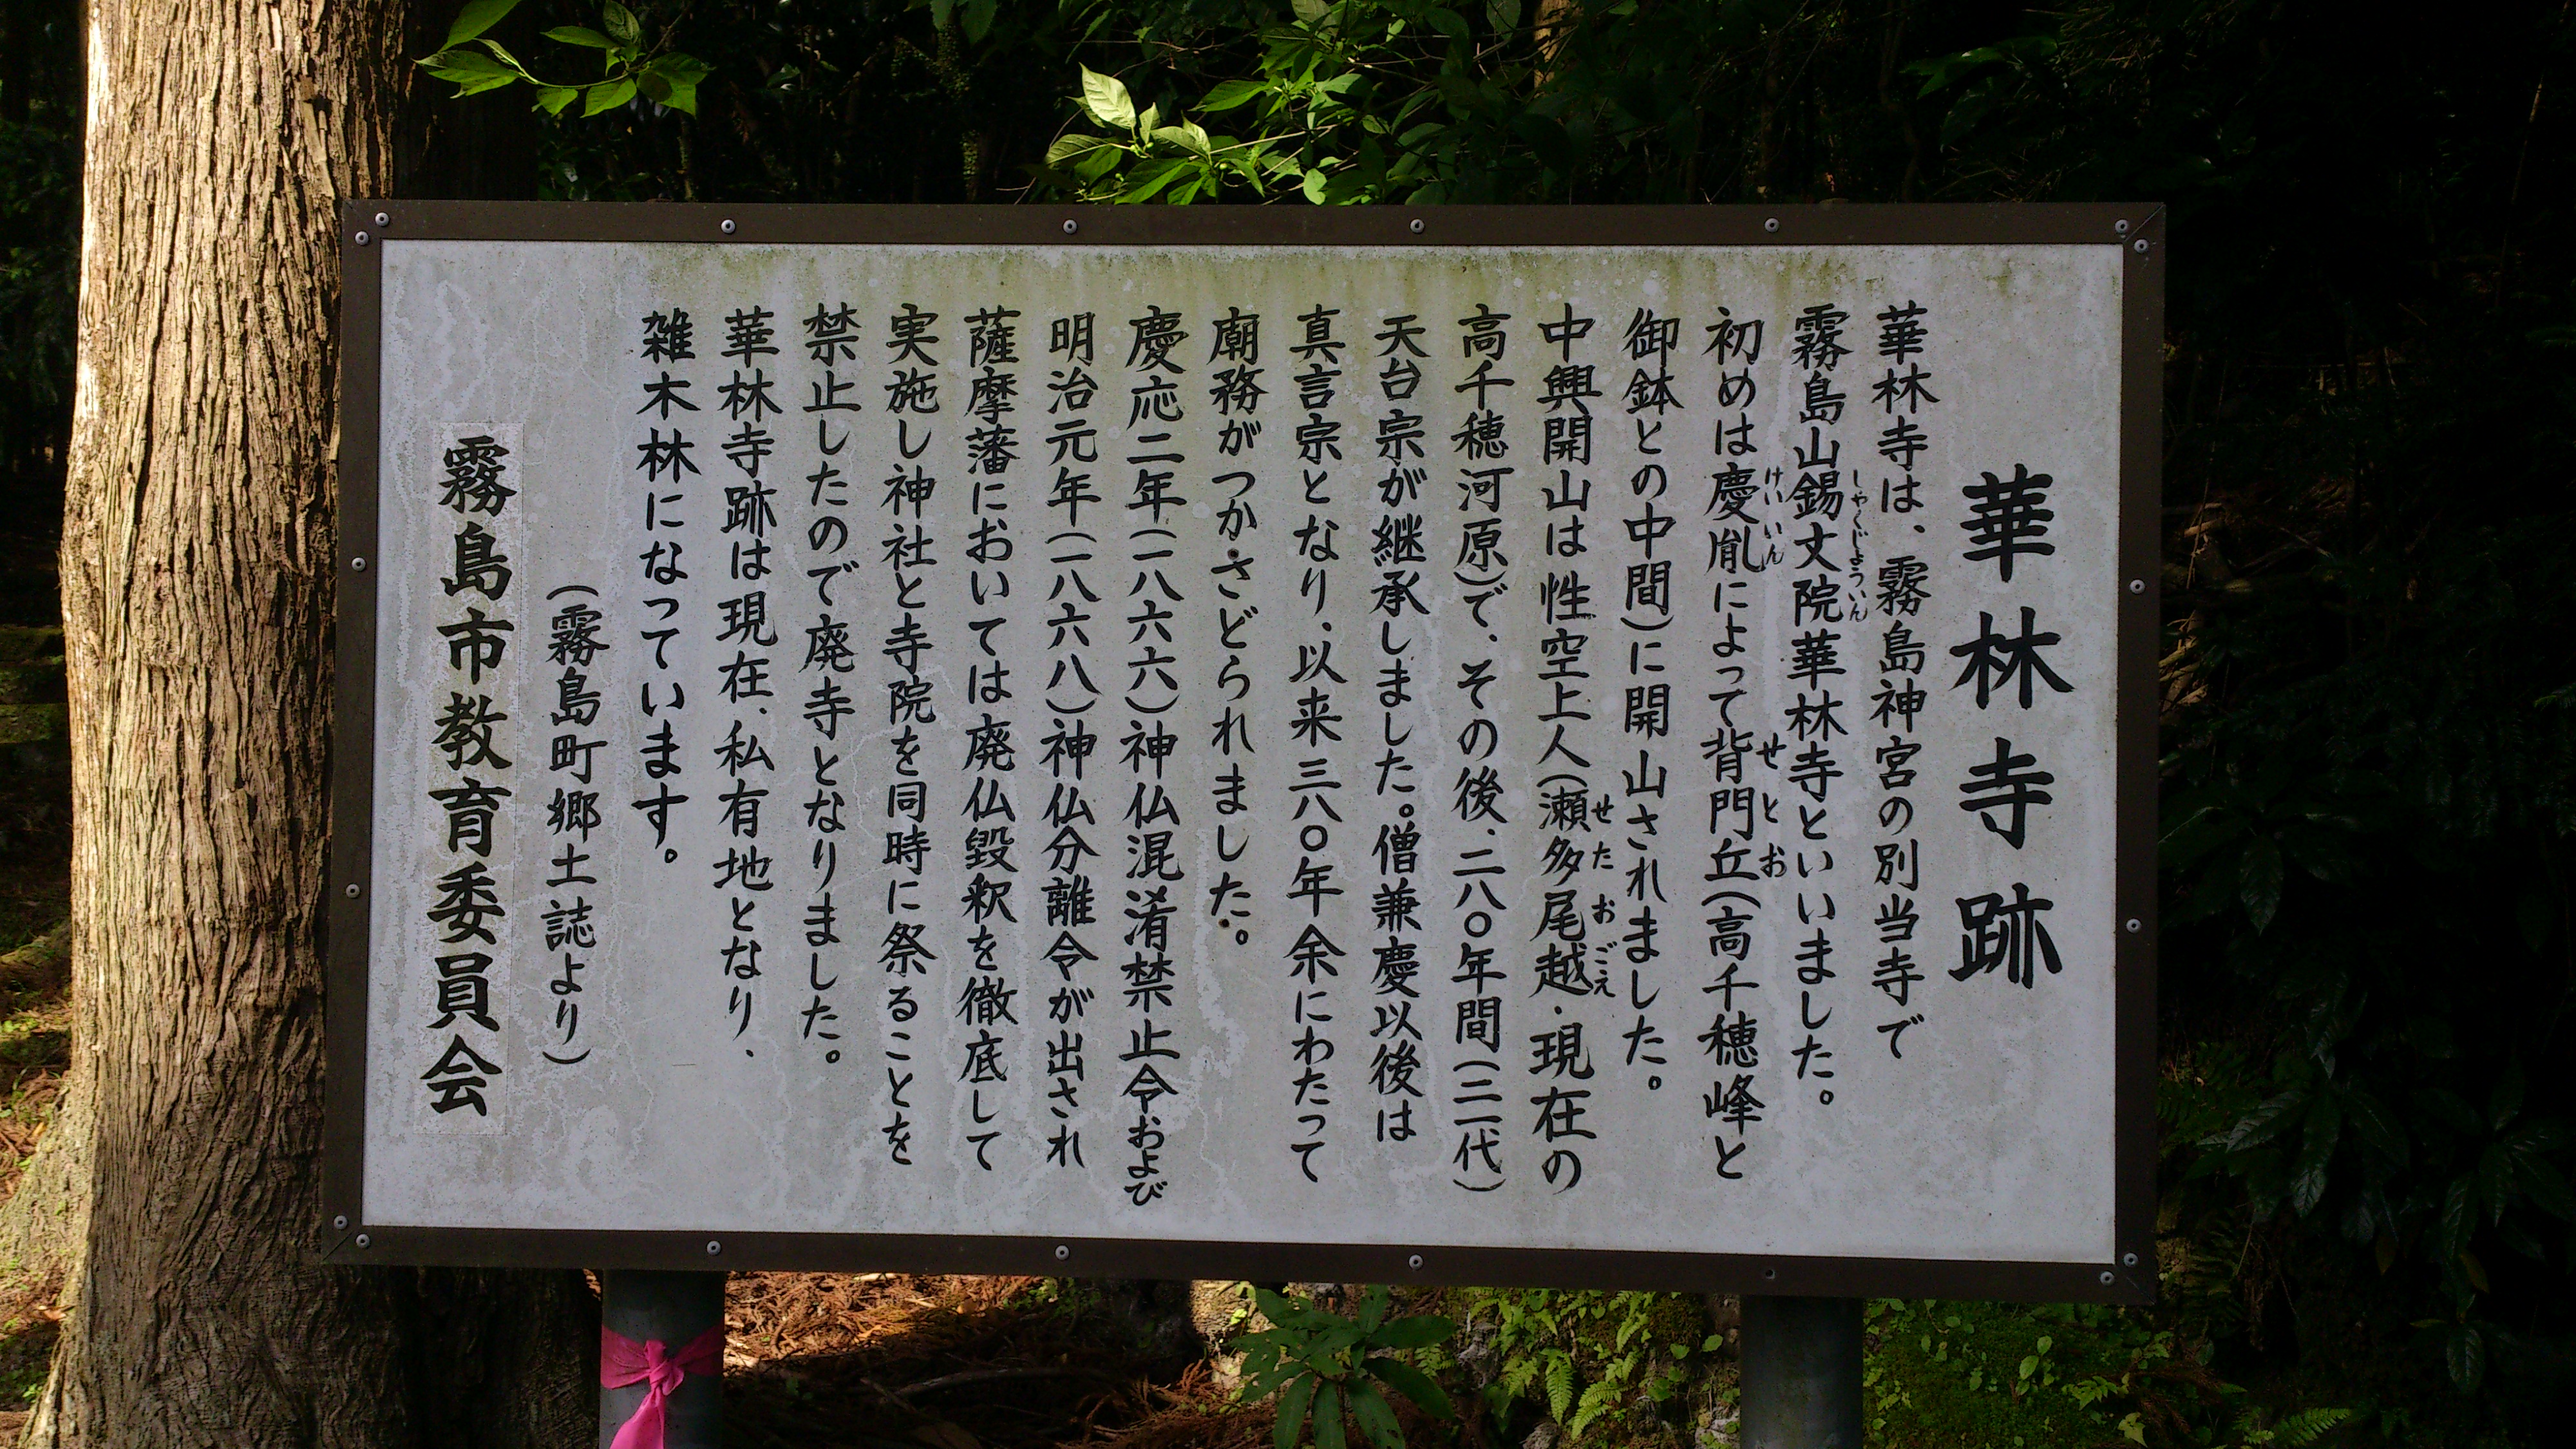 華林寺跡
華林寺は、霧島神宮の別当寺で
霧島山錫丈院華林寺といいました。
しゃくじょういん
初めは慶胤によって背門丘(高千穂峰と
けいいん
せとお
御鉢との中間)に開山されました。
中興開山は性空上人(瀬多尾越・現在の
せたおごえ
高千穂河原)で、その後、二八〇年間(二一代)
天台宗が継承しました。僧兼慶以後は
真言宗となり、以来三八〇年余にわたって
廟務がつかさどられました。
慶応二年(一八六六)神仏混淆禁止令および
明治元年(一八六八)神仏分離令が出され
薩摩藩においては廃仏毀釈を徹底して
実施し神社と寺院を同時に祭ることを
禁止したので廃寺となりました。
華林寺跡は現在、私有地となり、
雑木林になっています。
(霧島町郷土誌より)
霧島市教育委員会